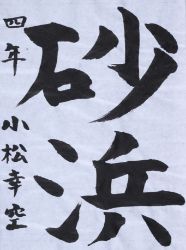 砂浜
四年 小松幸空